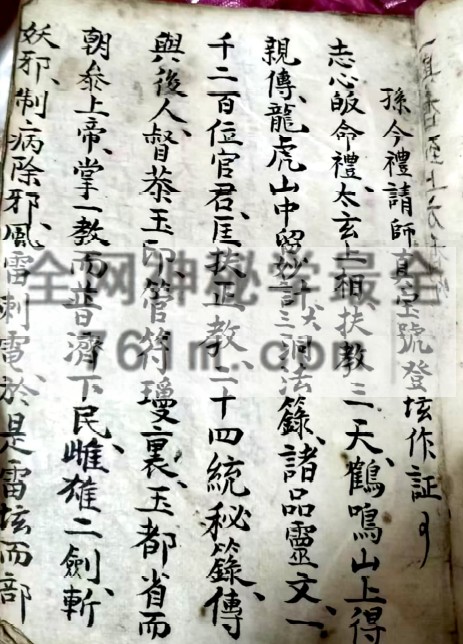 孫今禮請師真宝號登坛作証
志心皈命禮、太玄上相、扶教三天、鶴鳴山上得
親傳、龍虎山中留妙訣、三洞法籙、諸品靈文、一
千二百位官君、匡扶正教、二十四統秘籙、傳
與後人、督泰玉印、管符瓊裏、玉都省而
朝叅上帝、掌一教而普濟下民、雌雄二劍、斬
妖邪、制病除邪、風雷刺電、於是雷坛而部
全网神秘学最全
761m.com